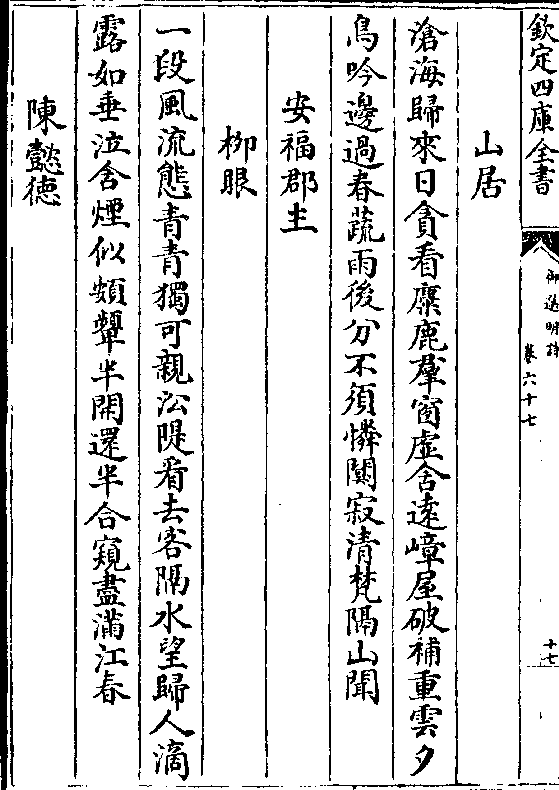 欽定四庫全書
御選明詩
卷六十七
十七
山居
滄海歸來日貪看麋鹿羣窗虛含遠嶂屋破補重雲夕
鳥吟邊過春蔬雨後分不須憐闃寂清梵隔山聞
安福郡主
柳眼
一段風流態青青獨可親㳂隄看去客隔水望歸人滴
露如垂泣含煙似頻顰半開還半合窺盡滿江春
陳懿德